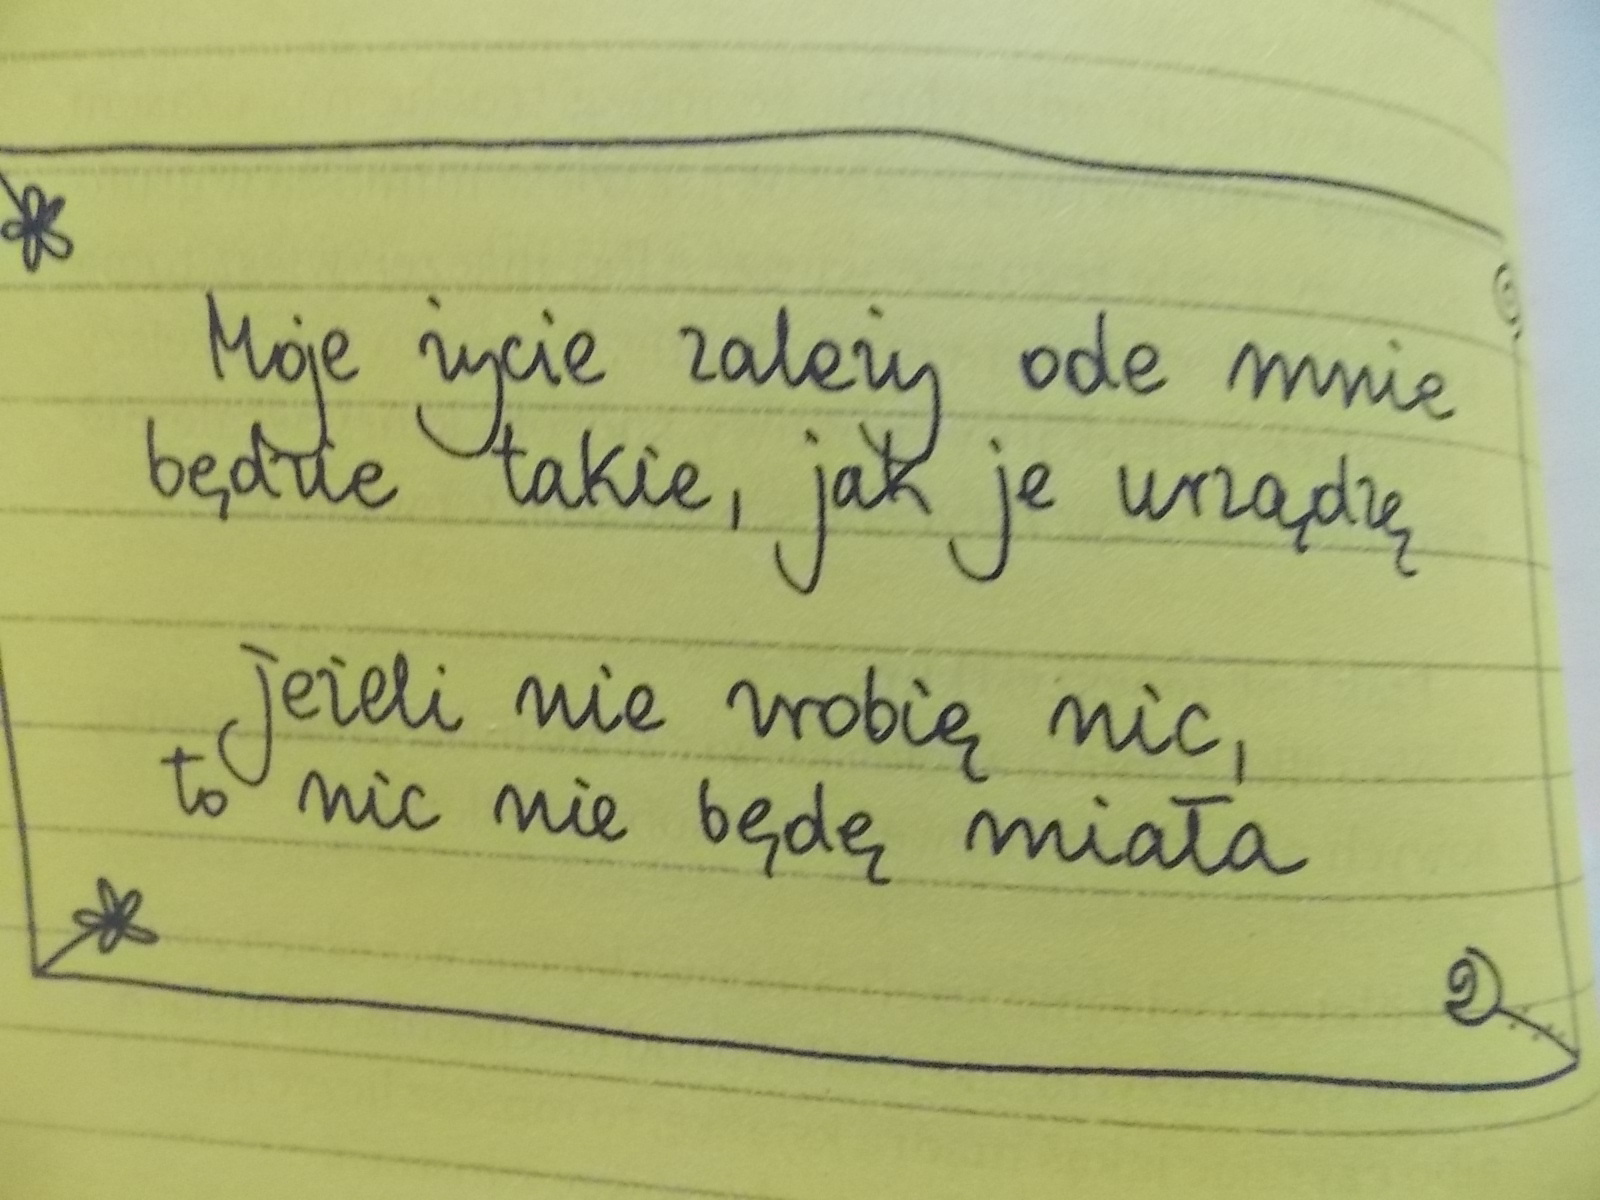 Moje życie zależy ode mnie
będzie takie, jak je urządzę
jeżeli nie zrobię nic,
to nic nie będę miała